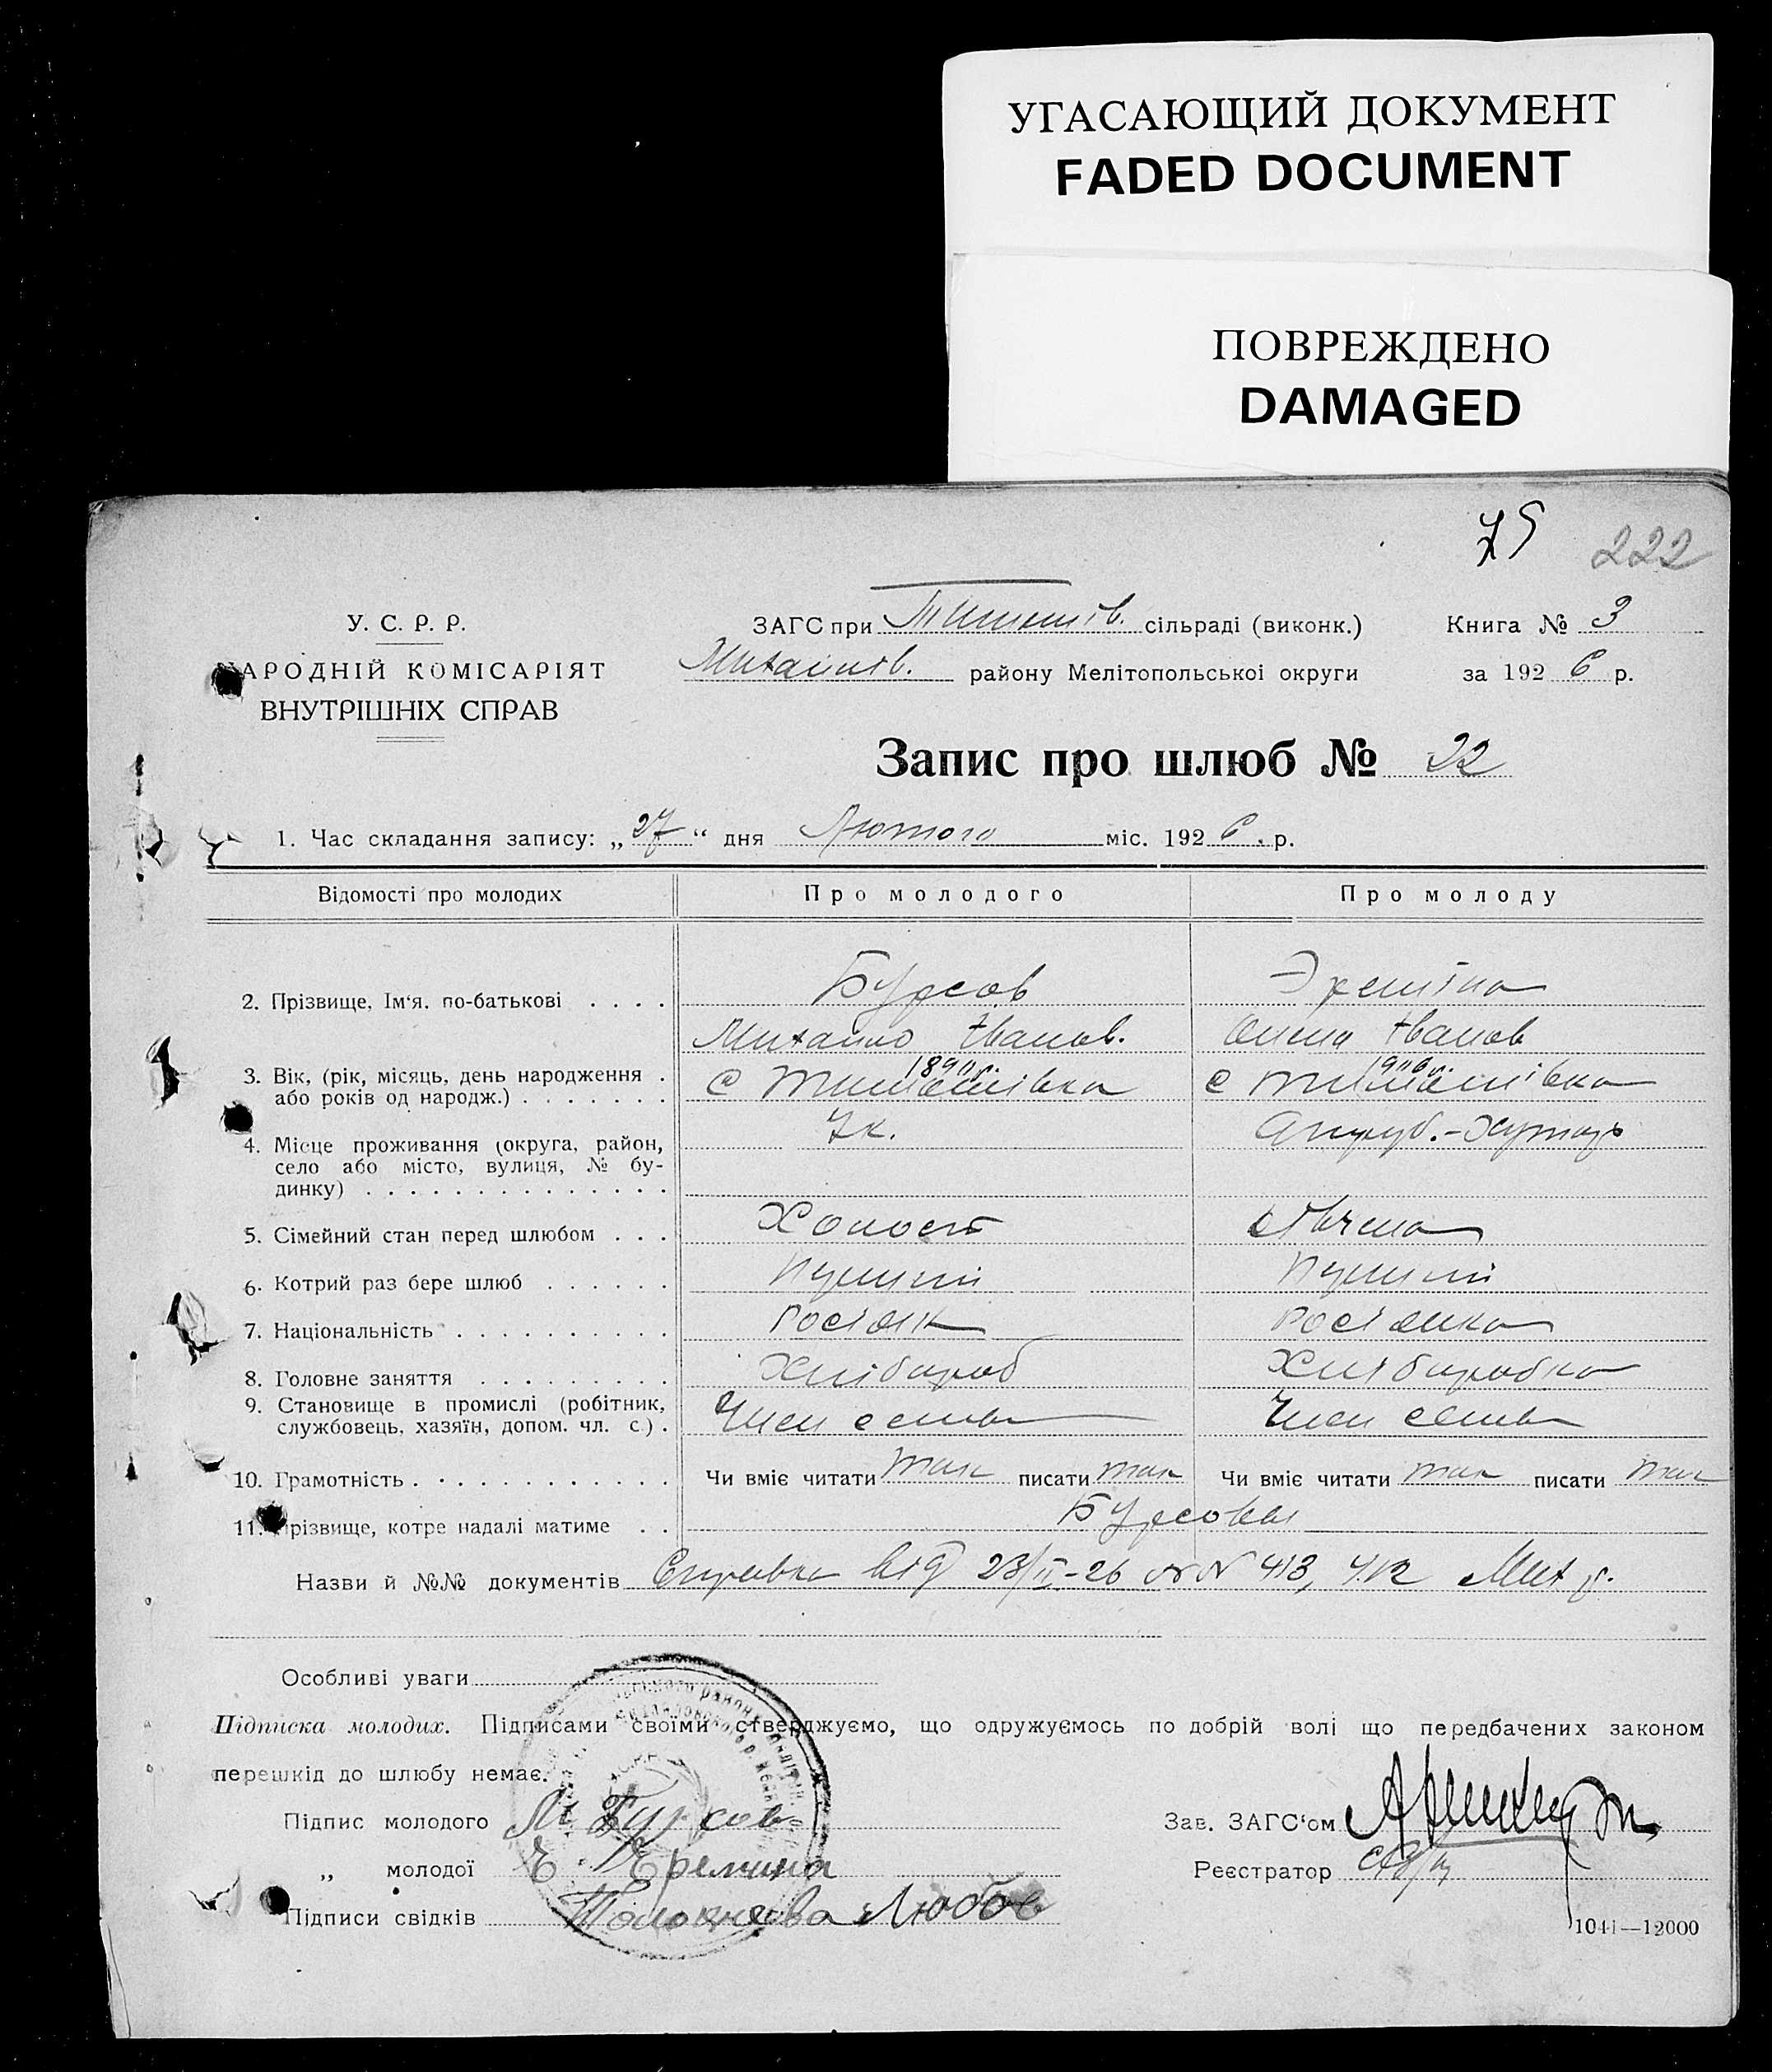 УГАСАЮЩИЙ ДОКУМЕНТ
FADED DOCUMENT
ПОВРЕЖДЕНО
DAMAGED
75 222
У. С. Р. Р.
НАРОДНІЙ КОМІСАРІЯТ
ВНУТРІШНІХ СПРАВ
ЗАГС при Тимошів. сільраді (виконк.) Книга № 3
Михайлів. району Мелітопольської округи за 1926 р.
Запис про шлюб № 22
1. Час складання запису: „27“ дня Лютого міс. 1926. р.
Відомості про молодих Про молодого Про молоду
2. Прізвище, Ім'я, по-батькові . . . . Бурсов Эреміна
Михайло Іванов. Олена Іванов
3. Вік, (рік, місяць, день народження . 1890 г. 1906 г.
або років од народж.) . . . . . . . с Тимошівка с Тимошівка
4. Місце проживання (округа, район, Ук.
село або місто, вулиця, № бу-
динку) . . . . . . . . . . . . . . .
5. Сімейний стан перед шлюбом . . . Холост
6. Котрий раз бере шлюб . . . . . .
7. Національність . . . . . . . . . . . Росіянк Росіянка
8. Головне заняття . . . . . . . . . Хлібороб Хліборобка
9. Становище в промислі (робітник, Член семьи Член семьи
службовець, хазяїн, допом. чл. с.) .
10. Грамотність . . . . . . . . . . . . Чи вміє читати так писати так Чи вміє читати так писати так
11. Прізвище, котре надалі матиме . . Бурсовы
Назви й №№ документів Справка від 23/II-26 413,
Особливі уваги
Підписка молодих. Підписами своїми стверджуємо, що одружуємось по добрій волі що передбачених законом
перешкід до шлюбу немає.
Підпис молодого М Бурсов Зав. ЗАГС'ом
„ молодої Е. Еремина Реєстратор
Підписи свідків Толокнова Любов
1041—12000